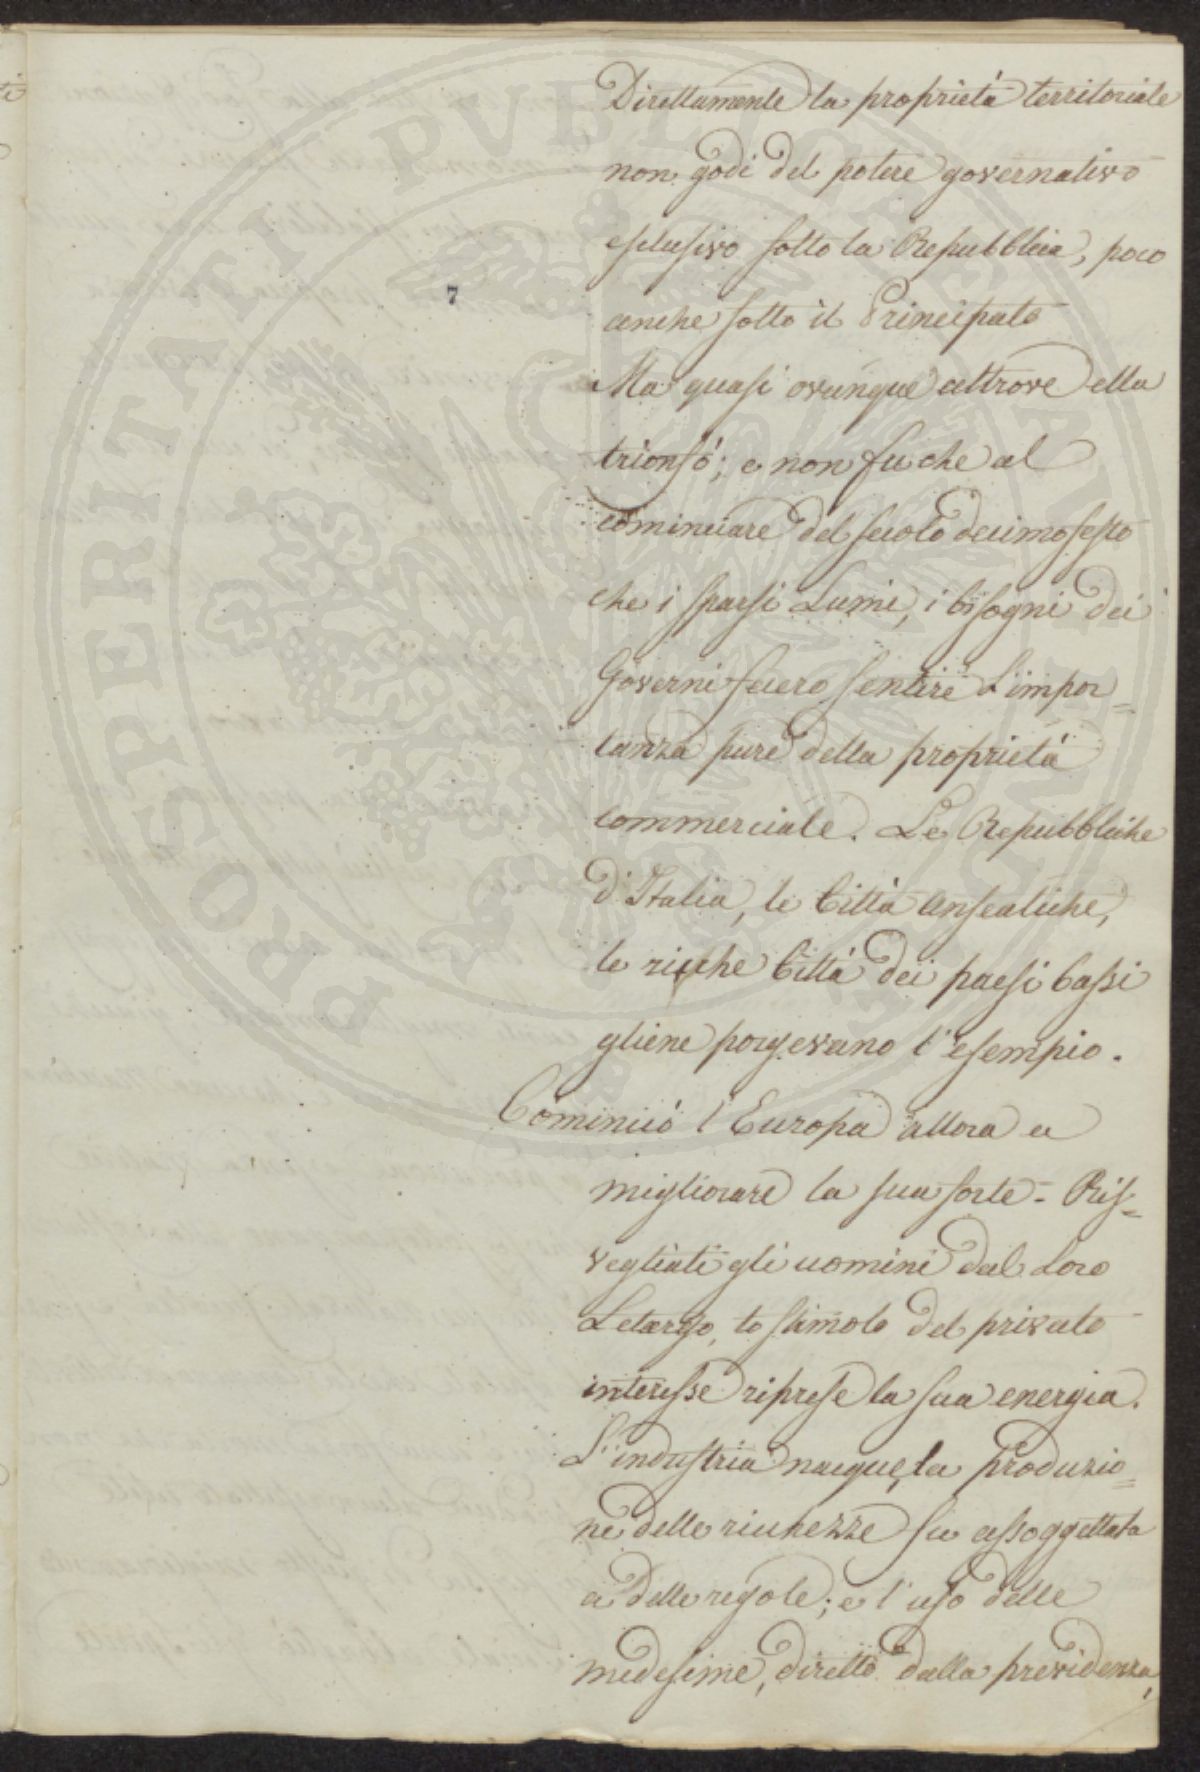 Direttamente la proprietá territoriale
non godi del potere governativo
esclusivo sotto la Repubblica, poco
anche sotto il Principato
7
Ma quasi ovunque altrove ella
trionfó; e non fu che al
cominciare del secolo decimosesto
che i sparsi Lumi, i bisogni dei
Governi fecero sentire L'impor=
tanza pure della proprietá
commerciale. Le Repubbliche
d'Italia, le Cittá anseatiche,
le ricche Cittá dei paesi bassi
gliene porgevano l'esempio.
Cominció l'Europa allora a
migliorare la sua sorte - Ris=
vegliati gli uomini dal Loro
Letargo, lo stimolo del privato
interesse riprese la sua energia.
L'industria nacque, la produzio=
ne delle ricchezze fu assoggettata
a delle regole; e l'uso delle
medesime, diretto dalla previdenza,
PROSPERITATI PUBLICAE AUGENDAE